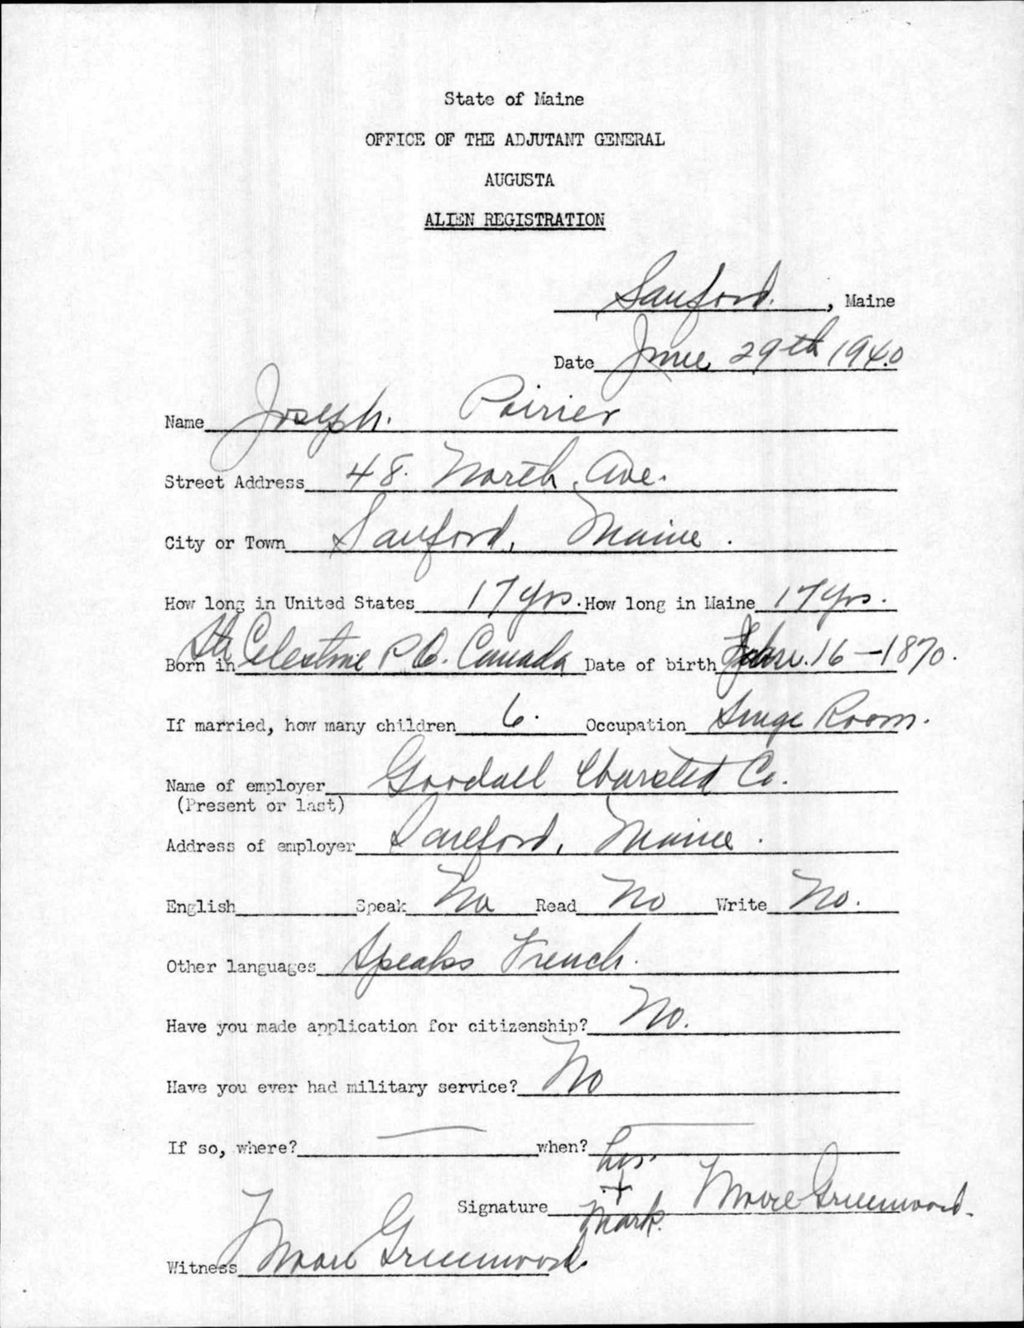 State of Maine
OFFICE OF THE ADJUTANT GENERAL
AUGUSTA
ALIEN REGISTRATION
Sanford. , Maine
Date June 29th 1940
Name Joseph. Poirier
Street Address 48. North Ave.
City or Town Sanford, Maine.
How long in United States 17 yrs. How long in Maine 17 yrs.
Born in St Celestine P.Q. Canada Date of birth 16-1870.
If married, how many children 6. Occupation Singe Room.
Name of employer Goodall Worsted Co.
(Present or last)
Address of employer Sanford, Maine.
English Speak No Read No Write No.
Other languages Speaks French.
Have you made application for citizenship? No.
Have you ever had military service? No
If so, where? — when? —
his
Signature + Greenwood.
mark.
Witness Greenwood.